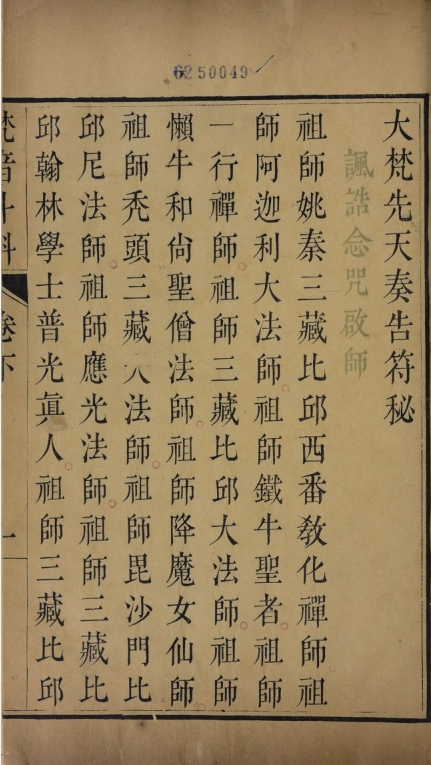 6250049
大梵先天奏告符秘
諷誥念咒啟師
祖師姚秦三藏比邱西番敎化禪師祖
師阿迦利大法師祖師鐵牛聖者祖師
一行禪師祖師三藏比邱大法師祖師
懶牛和尙聖僧法師祖師降魔女仙師
祖師禿頭三藏大法師祖師毘沙門比
邱尼法師祖師應光法師祖師三藏比
邱翰林學士普光眞人祖師三藏比邱
梵音斗科
卷下
一